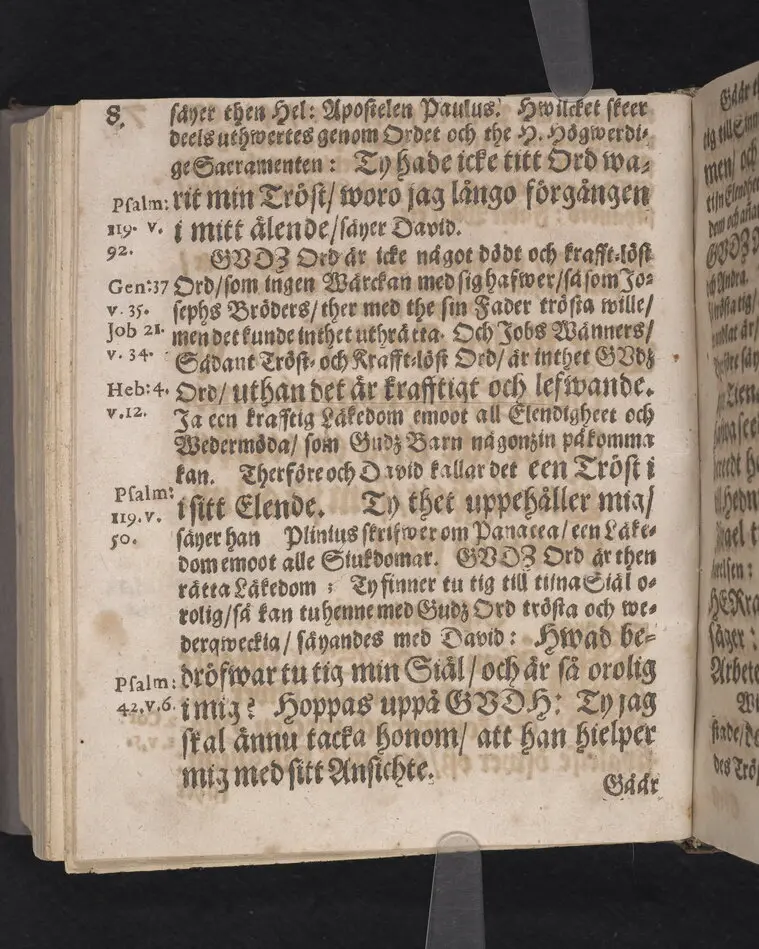 8.
säyer then Hel: Apostelen Paulus. Hwilcket skeer
deels uthwertes genom Ordet och the H. Högwerdi-
ge Sacramenten: Ty hade icke titt Ord wa-
Psalm: rit min Tröst/ woro jag längo förgången
119. v. i mitt älende/ säyer David.
92. GVDZ Ord är icke något dödt och krafft-löst
Gen:37 Ord/ som ingen Wärckan med sig hafwer/ så som Jo-
v. 35. sephs Bröders/ ther med the sin Fader trösta wille/
Job 21. men det kunde inthet uthrätta. Och Jobs Wänners/
v. 34. Sådant Tröst- och Krafft-löst Ord/ är inthet GVdz
Heb:4. Ord/ uthan det är krafftigt och lefwande.
v.12. Ja een krafftig Läkedom emoot all Elendigheet och
Wedermöda/ som Gudz Barn någonzin påkomma
kan. Therföre och David kallar det een Tröst i
Psalm: i sitt Elende. Ty thet uppehåller mig/
119. v. säyer han Plinius skrifwer om Panacea/ een Läke-
50. dom emoot alle Siukdomar. GVDZ Ord är then
rätta Läkedom: Ty finner tu tig till tiina Siäl o-
rolig/ så kan tu henne med Gudz Ord trösta och we-
derqweckia/ säyandes med David: Hwad be-
Psalm: dröfwar tu tig min Siäl/ och är så orolig
42.v.6. i mig? Hoppas uppå GVDH: Ty jag
skal ännu tacka honom/ att han hielper
mig med sitt Ansichte.
Gäär